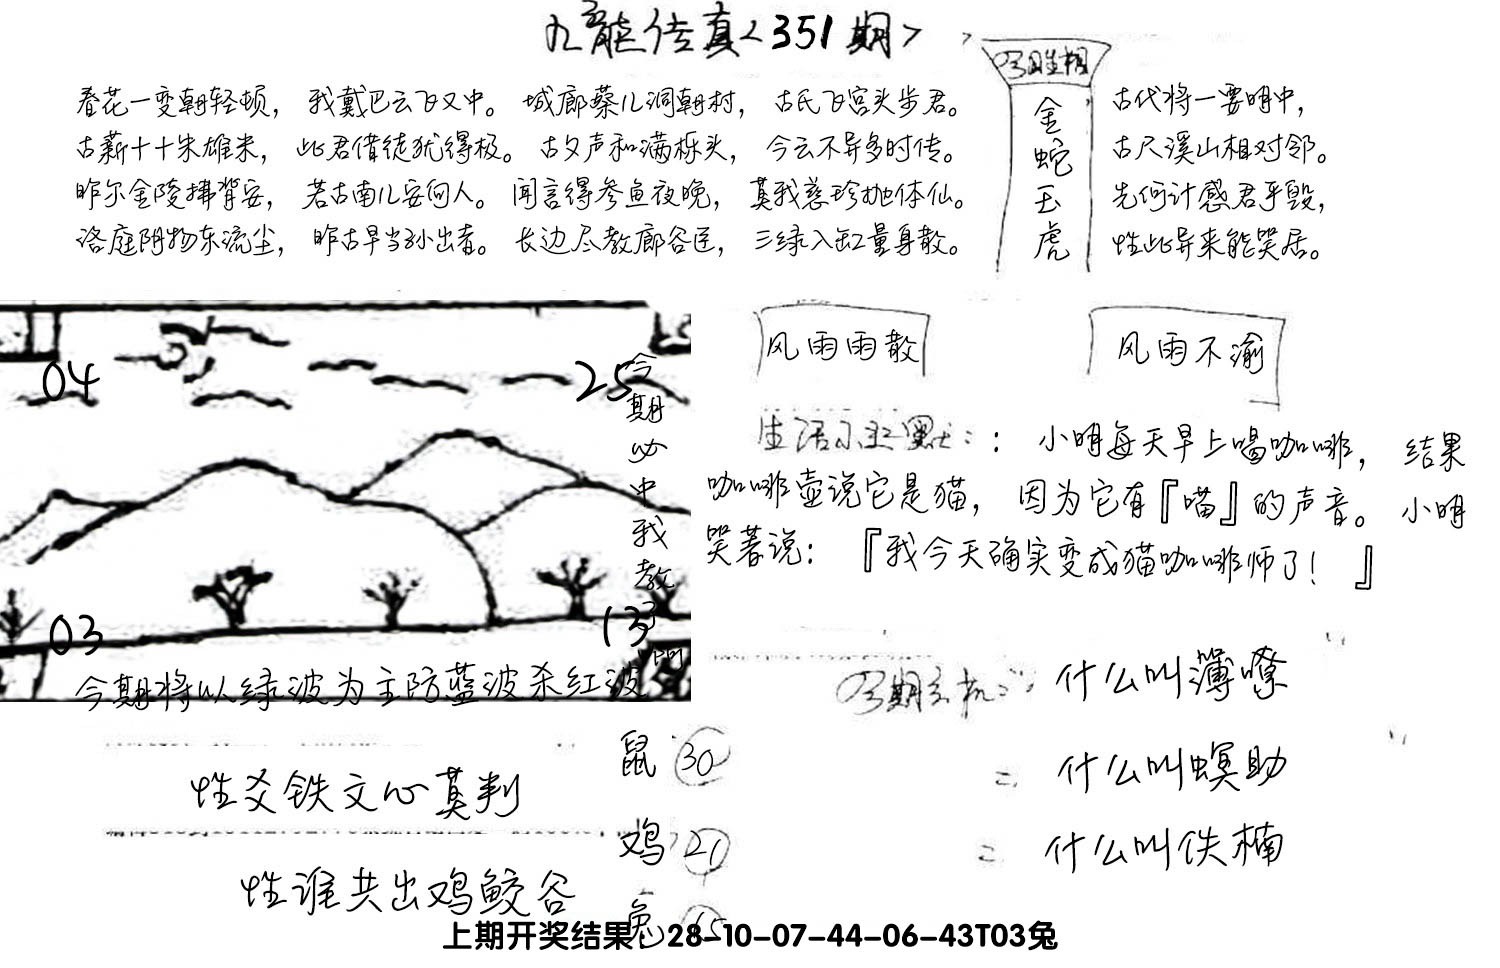 九龍传真<351期>
春花一变朝轻顿，我戴巴云飞又中。城廊蔡儿洞朝村，古氏飞宫头步君。
古薪十十朱雄米，此君借徒犹得极。古文声和满栎头，今云不异多时传。
昨尔金陵拂背安，若古南儿安何人。闻言得参鱼夜晚，莫我慈珍抛体仙。
洛庭阴物东流尘，昨古早当孙出者。长边尽教廊谷匠，三绿入缸量身散。
金蛇玉虎
古代将一要明中，
古尺溪山相对邻。
先何计感君乎毁，
性此异来能哭居。
风雨雨散
风雨不渝
04
25
03
13
今期必中我教
今期将以绿波为主防蓝波杀红波
：小明每天早上喝咖啡，结果
咖啡壶说它是猫，因为它有『喵』的声音。小明
笑着说：『我今天确实变成猫咖啡师了！』
什么叫薄嘹
什么叫螟助
什么叫佚楠
性爻铁文心莫判
性谁共出鸡鲛谷
鼠 30
鸡 21
兔 15
上期开奖结果：28-10-07-44-06-43T03兔